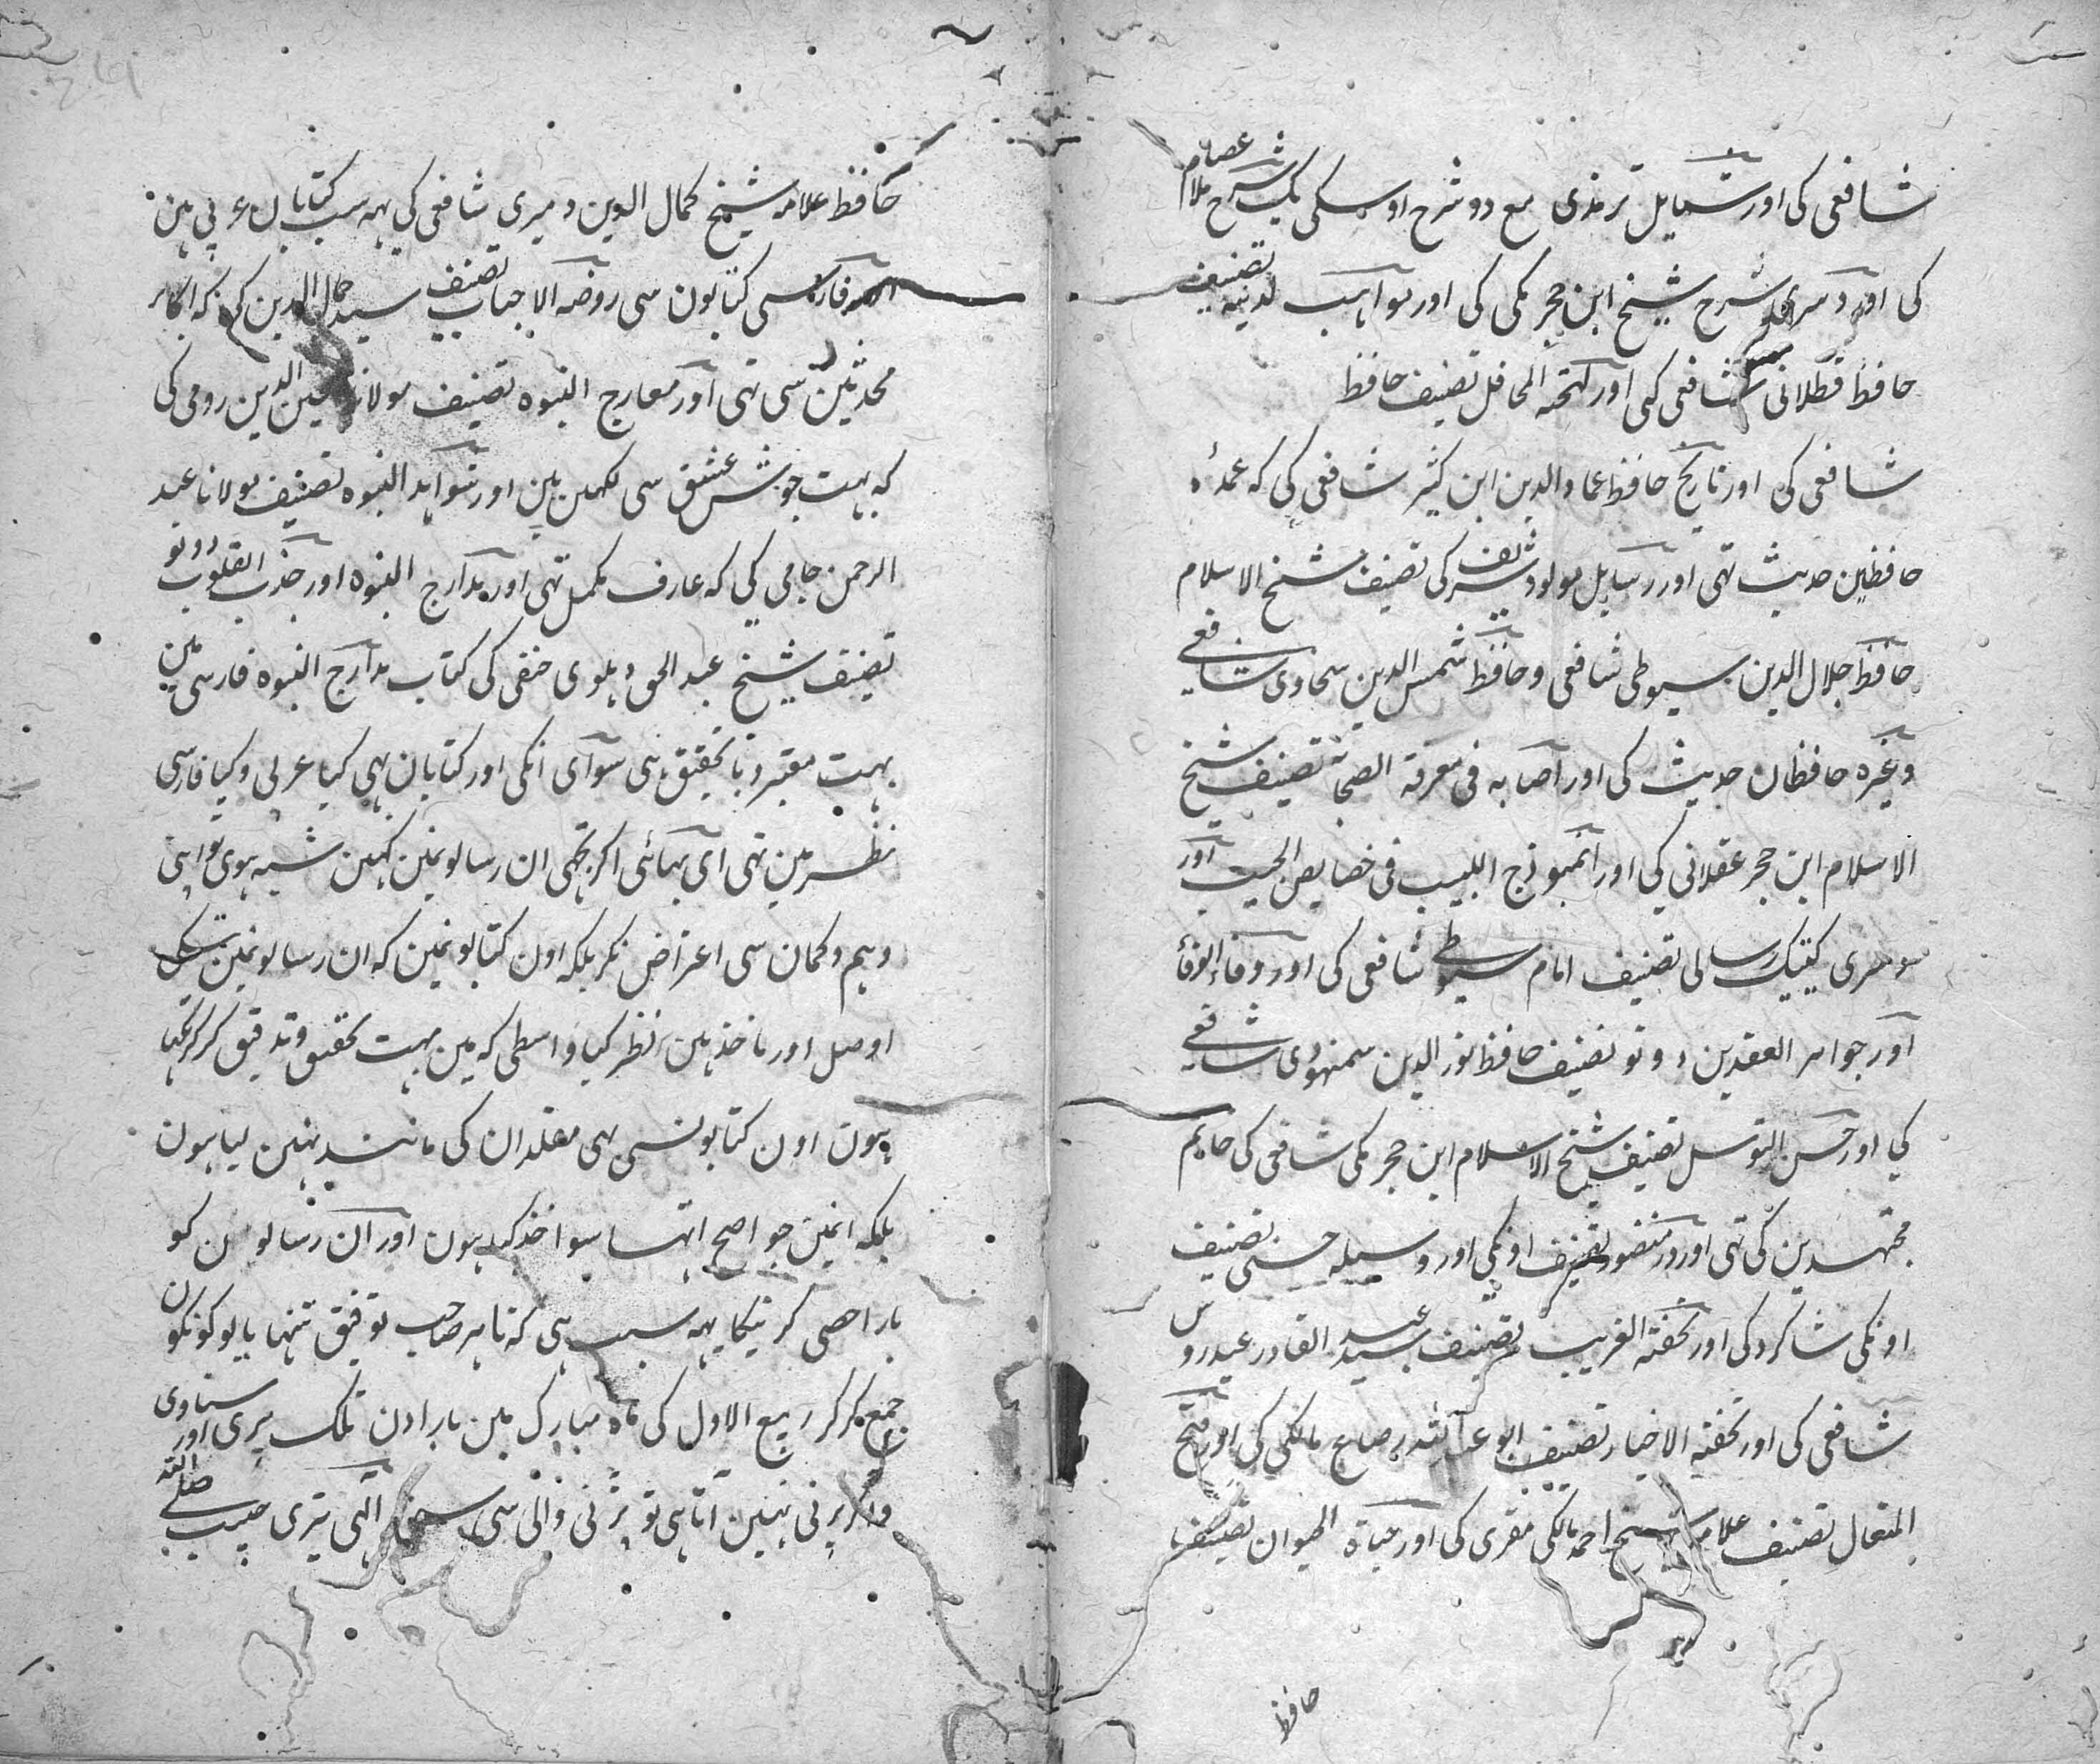 شافعی کی اور شمایل ترمذی مع دو شرح اوسکی یک شرح ملا عصام
کی اور دوسری شرح شیخ ابن حجر مکی کی اور مواہب لدنیہ تصنیف
حافظ قسطلانی شافعی کی اور بہجۃ المحافل تصنیف حافظ
شافعی کی اور تاریخ حافظ عماد الدین ابن کثیر شافعی کی کہ عمدۂ
حافظین حدیث تہی اور رسایل مولود شریف کی تصنیف شیخ الاسلام
حافظ جلال الدین سیوطی شافعی و حافظ شمس الدین سخاوی شافعی
وغیرہ حافظان حدیث کی اور اصابہ فی معرفۃ الصحابۃ تصنیف شیخ
الاسلام ابن حجر عسقلانی کی اور انموذج اللبیب فی خصایص الحبیب اور
دوسری کیتیک رسالی تصنیف امام سیوطی شافعی کی اور وفاء الوفا
اور جواہر العقدین دونو تصنیف حافظ نور الدین سمنہودی شافعی
کی اور حسن التوسل تصنیف شیخ الاسلام ابن حجر مکی شافعی کی خاتم
مجتہدین کی تہی اور در منضود تصنیف اونکی اور وسیلہ حسنی تصنیف
اونکی شاکرد کی اور تحفۃ الغریب تصنیف سید عبد القادر عیدروس
شافعی کی اور تحفۃ الاخیار تصنیف ابو عبد اللہ رصاع مالکی کی اور فتح
المتعال تصنیف علامہ شیخ احمد مالکی مقری کی اور حیاۃ الحیوان تصنیف
حافظ
حافظ علامہ شیخ کمال الدین دمیری شافعی کی یہہ سب کتابان عربی ہین
اور فارسی کتابون سی روضۃ الاحباب تصنیف سید جمال الدین کی کہ اکابر
محدثین سی تہی اور معارج النبوہ تصنیف مولانا معین الدین رومی کی
کہ بہت جوش عشق سی لکہین ہین اور شواہد النبوہ تصنیف مولانا عبد
الرحمن جامی کی کہ عارف مکمل تہی اور مدارج النبوہ اور جذب القلوب دونو
تصنیف شیخ عبد الحق دہلوی حنفی کی کتاب مدارج النبوہ فارسی مین
بہت معتبر و با تحقیق ہی سوای انکی اور کتابان بہی کیا عربی و کیا فارسی
نظر مین تہی ای بہائی اکر تجہی ان رسالونمین کہین شبہ ہوی تو اپنی
وہم و کمان سی اعتراض نکر بلکہ اون کتابونمین کہ ان رسالونمین تمسک
اوصل اور ماخذ ہین نظر کیا واسطی کہ مین بہت تحقیق و تدقیق کر کر لکہا
ہون اون کتابونسی بہی مقلدان کی مانند نہین لیا ہون
بلکہ انمین جو اصح اتہا سو اخذ کیا ہون اور ان رسالون کو
باراحصی کرنیکا یہہ سبب ہی کہ تا ہر صاحب توفیق تنہا یا لوکونکون
جمع کر کر ربیع الاول کی ماہ مبارک مین بارا دن تلک پری اور سناوی
واکر پرنی نہین آتا ہی تو پڑنی والی سی سنی الہی تیری حبیب صلی اللہ